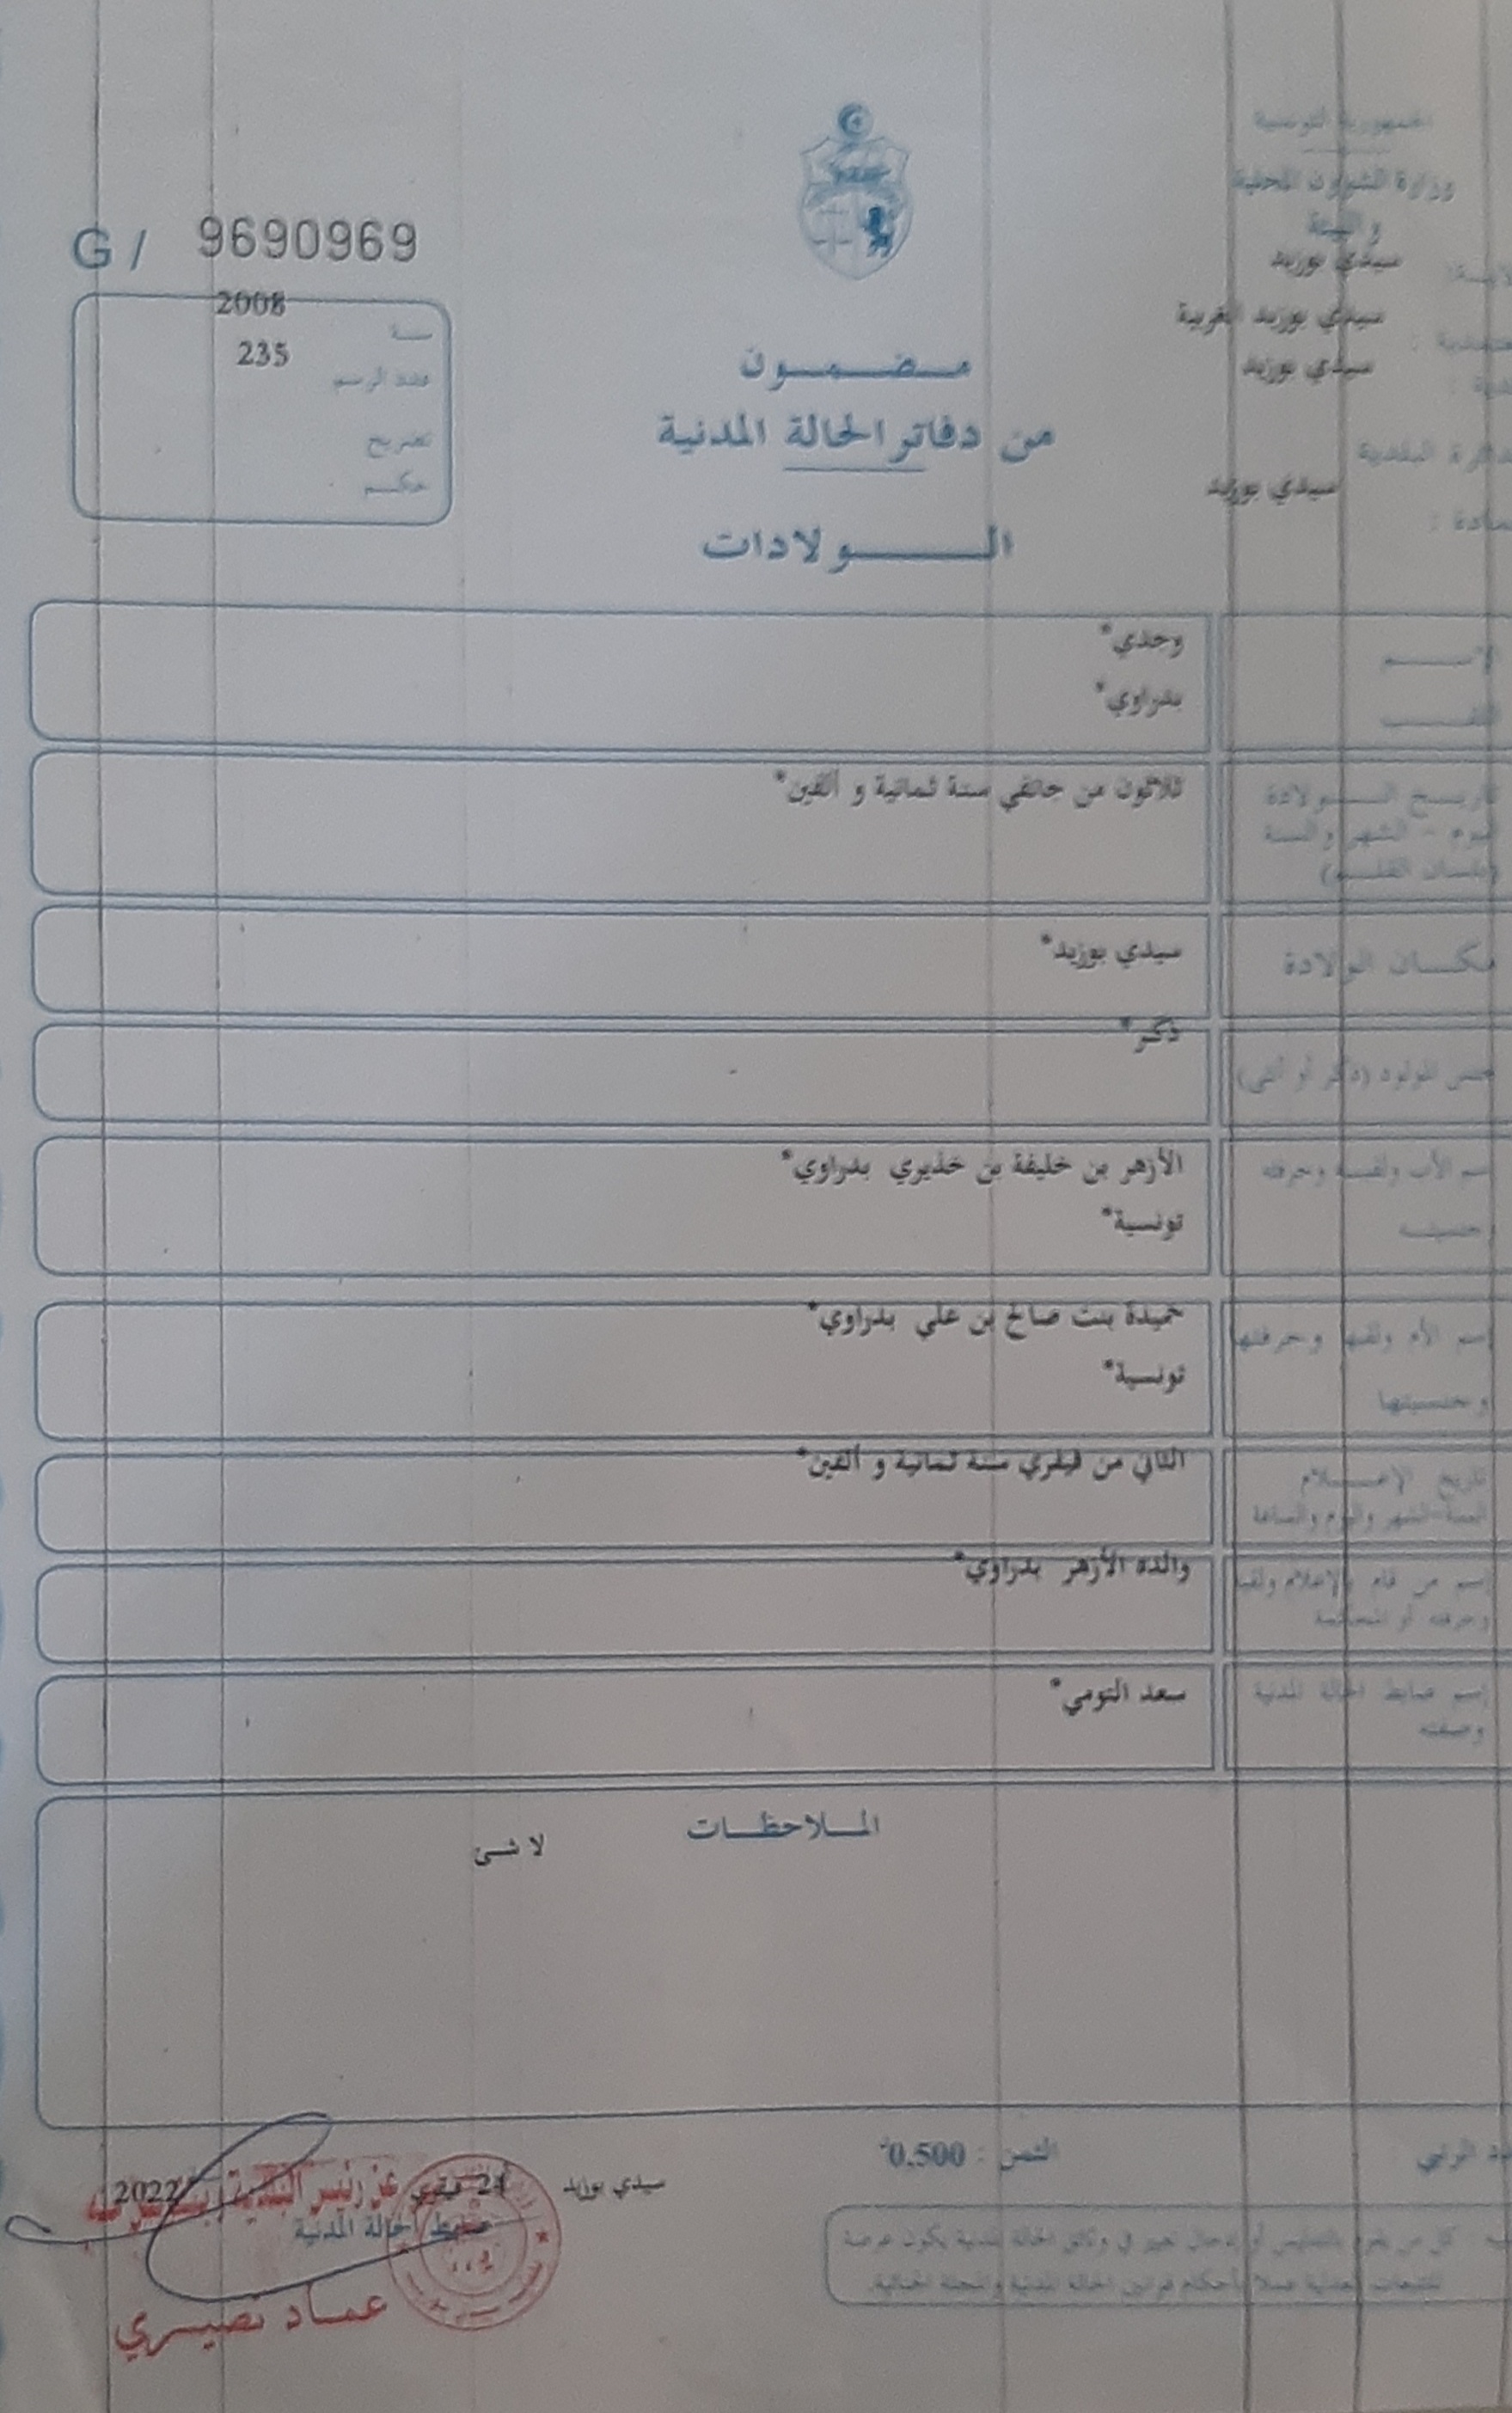 الجمهورية التونسية
وزارة الشؤون المحلية
و البيئة
سيدي بوزيد
سيدي بوزيد الغربية
سيدي بوزيد
البلدية
سيدي بوزيد
G / 9690969
2008
سنة
235
عدد الرسم
تصريح
حكم
مضمون
من دفاتر الحالة المدنية
الولادات
الإسم
وجدي*
اللقب
بدراوي*
تاريخ الولادة
اليوم - الشهر والسنة
(بلسان القلم)
ثلاثون من جانفي سنة ثمانية و ألفين*
مكان الولادة
سيدي بوزيد*
جنس المولود (ذكر أو أنثى)
ذكر*
إسم الأب ولقبه وحرفته
الأزهر بن خليفة بن خذيري بدراوي*
وجنسيته
تونسية*
إسم الأم ولقبها وحرفتها
حميدة بنت صالح بن علي بدراوي*
وجنسيتها
تونسية*
تاريخ الإعلام
السنة-الشهر واليوم والساعة
الثاني من فيفري سنة ثمانية و ألفين*
إسم من قام بالإعلام ولقبه
وحرفته أو المحكمة
والده الأزهر بدراوي*
إسم ضابط الحالة المدنية
وصفته
سعد التومي*
الملاحظات
لا شئ
الثمن : 0.500د
سيدي بوزيد 24 فيفري 2022
عن رئيس البلدية
ضابط الحالة المدنية
عماد نصيري
كل من يقوم بالتدليس أو إدخال تغيير في وثائق الحالة المدنية يكون عرضة
للتتبعات العدلية عملا بأحكام قوانين الحالة المدنية والمجلة الجنائية.